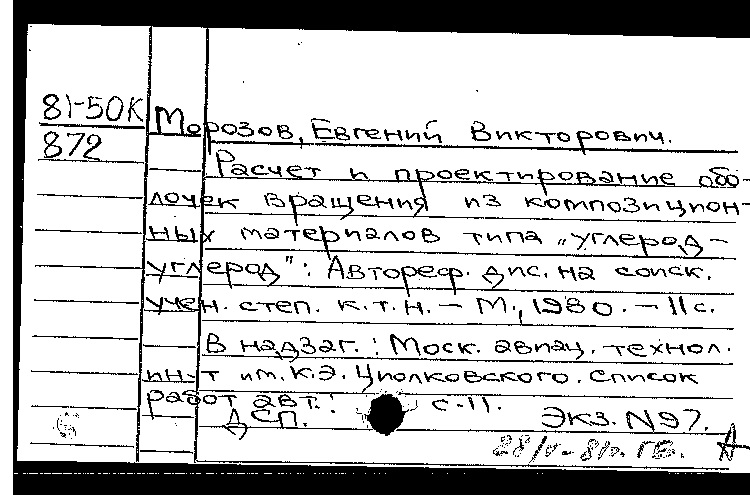 81-50К
872
Морозов, Евгений Викторович.
Расчет и проектирование обо-
лочек вращения из композицион-
ных материалов типа „углерод-
углерод": Автореф. дис. на соиск.
учен. степ. к.т.н. – М., 1980. – 11 с.
В надзаг.: Моск. авиац. технол.
ин-т им. К.Э. Циолковского. Список
работ авт.: с. 11.
ДСП.
Экз. N97.
28/V-81г.